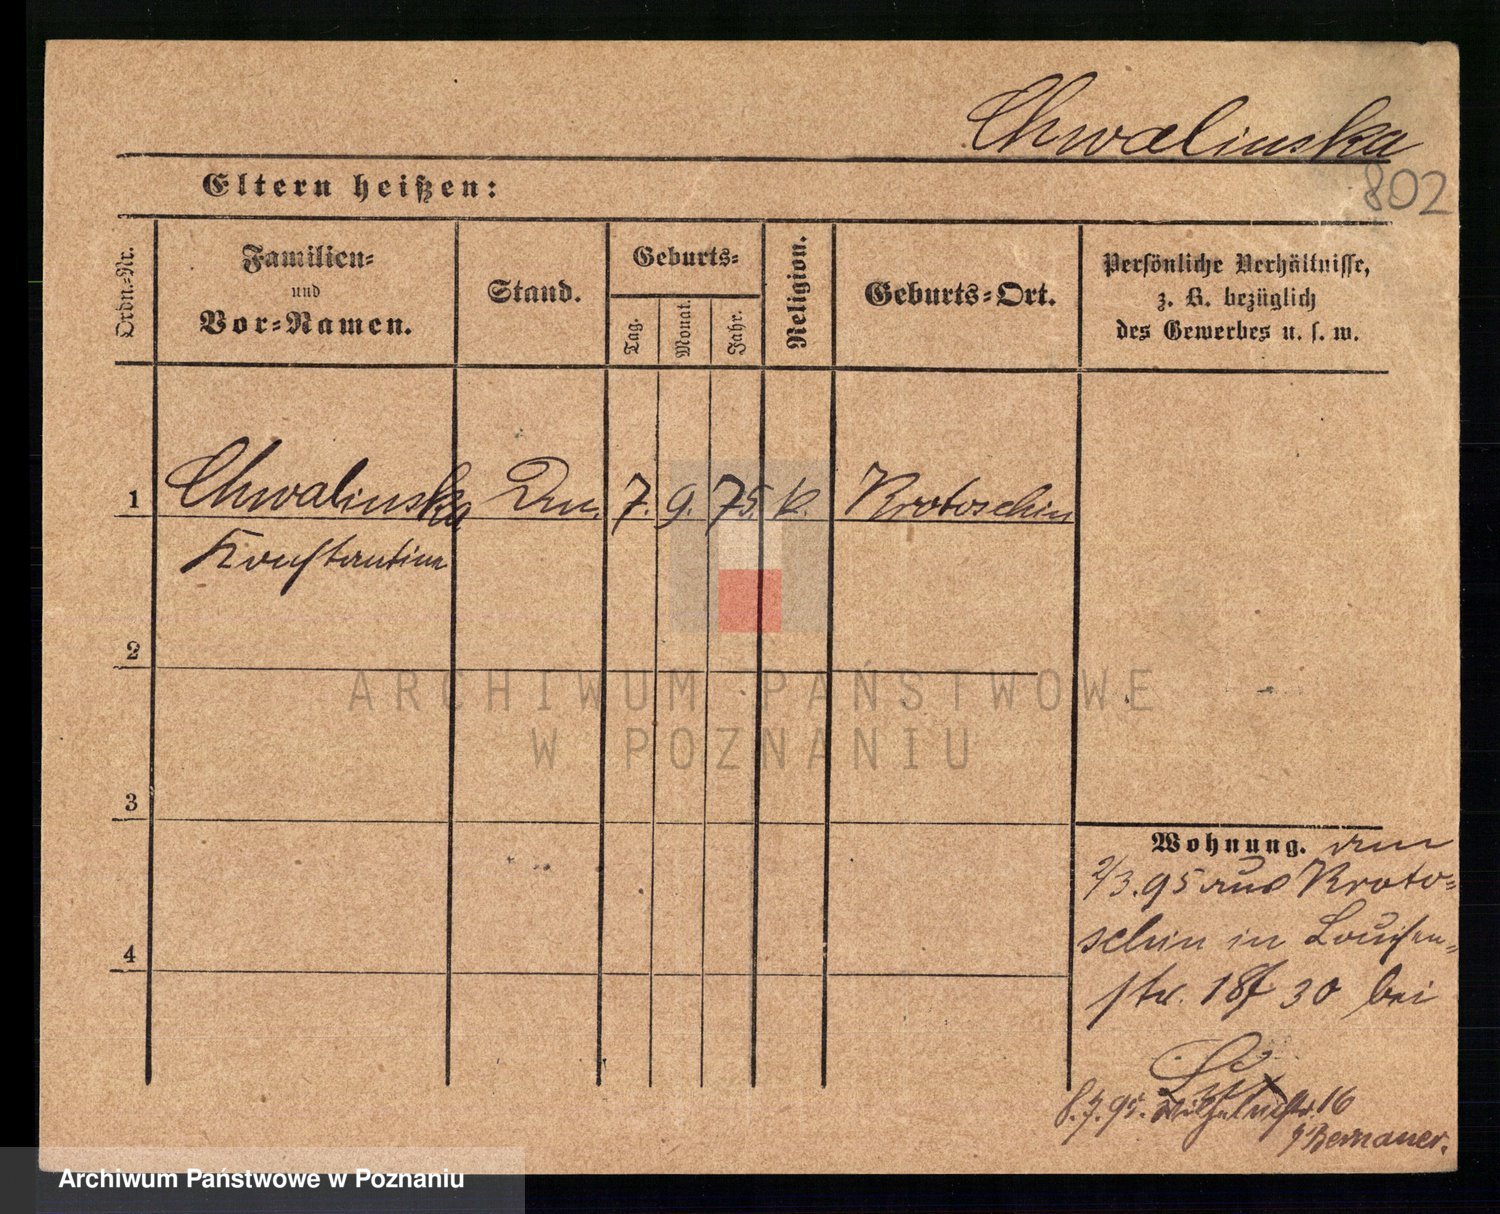 Chwalinska
802
Eltern heißen:
Ordn.-Nr.
Familien-
und
Vor-Namen.
Stand.
Geburts-
Tag.
Monat.
Jahr.
Religion.
Geburts-Ort.
Persönliche Verhältnisse,
z. B. bezüglich
des Gewerbes u. s. w.
1 Chwalinska 7. 9. 75. k. Krotoschin
Konstantine
2
3
4
Wohnung.
2/3.95 aus Kroto-
schin in Louisen-
str. 30 bei
8.7.95. Wilhelmstr. 16
Bernauer.
ARCHIWUM PAŃSTWOWE
W POZNANIU
Archiwum Państwowe w Poznaniu